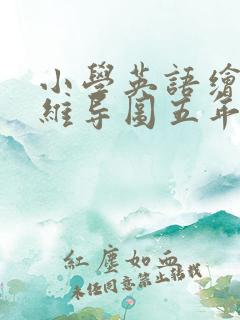 小學英語繪
維導圖五年
紅塵如血
未經同意禁止轉載